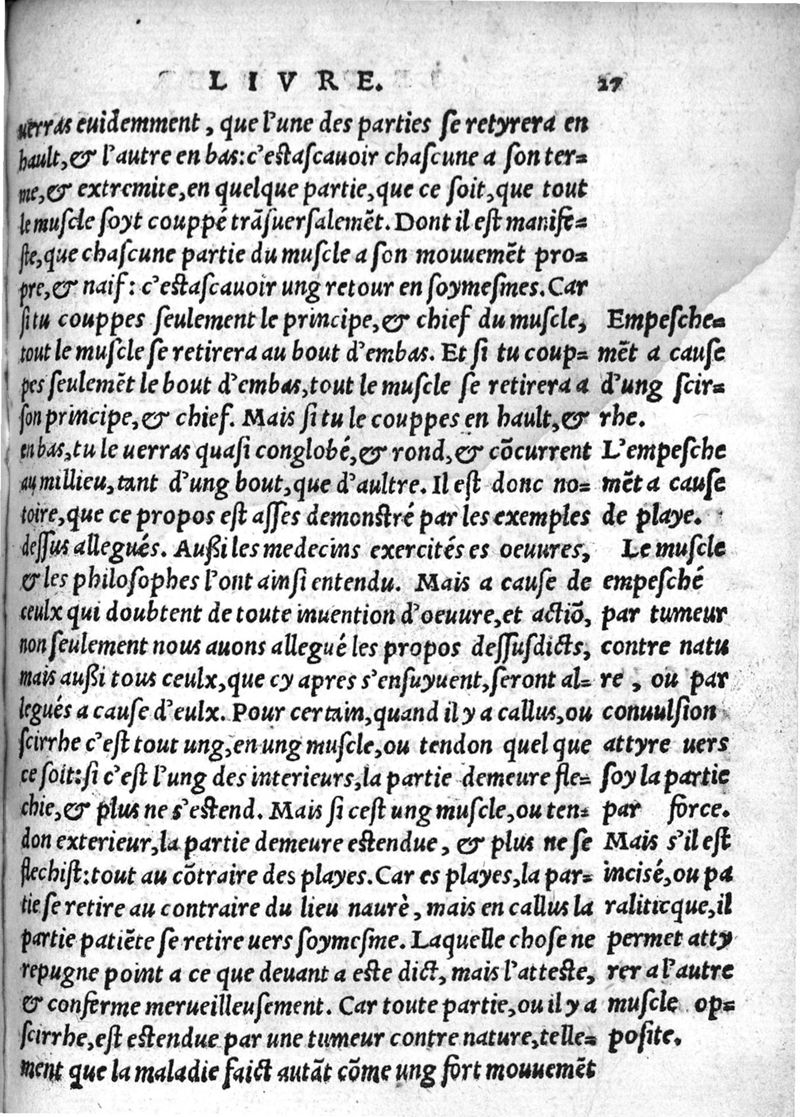 LIVRE. 27
uerras euidemment, que l'une des parties se retyrera en
hault, & l'autre en bas: c'estascauoir chascune a son ter-
me, & extremite, en quelque partie, que ce soit, que tout
le muscle soyt couppé trãsuersalemẽt. Dont il est manife-
ste, que chascune partie du muscle a son mouuemẽt pro-
pre, & naif: c'estascauoir ung retour en soymesmes. Car
si tu couppes seulement le principe, & chief du muscle,
tout le muscle se retirera au bout d'embas. Et si tu coup-
pes seulemẽt le bout d'embas, tout le muscle se retirera a
son principe, & chief. Mais si tu le couppes en hault, &
en bas, tu le uerras quasi conglobé, & rond, & cõcurrent
au millieu, tant d'ung bout, que d'aultre. Il est donc no-
toire, que ce propos est asses demonstré par les exemples
dessus allegués. Aussi les medecins exercités es oeuures,
& les philosophes l'ont ainsi entendu. Mais a cause de
ceulx qui doubtent de toute inuention d'oeuure, et actiõ,
non seulement nous auons allegué les propos dessusdicts,
mais aussi tous ceulx, que cy apres s'ensuyuent, seront al-
legués a cause d'eulx. Pour certain, quand il y a callus, ou
scirrhe c'est tout ung, en ung muscle, ou tendon quel que
ce soit: si c'est l'ung des interieurs, la partie demeure fle-
chie, & plus ne s'estend. Mais si cest ung muscle, ou ten-
don exterieur, la partie demeure estendue, & plus ne se
flechist: tout au cõtraire des playes. Car es playes, la par-
tie se retire au contraire du lieu naurè, mais en callus la
partie patiẽte se retire uers soymesme. Laquelle chose ne
repugne point a ce que deuant a este dict, mais l'atteste,
& conferme merueilleusement. Car toute partie, ou il y a
scirrhe, est estendue par une tumeur contre nature, telle-
ment que la maladie faict autãt cõme ung fort mouuemẽt
Empesche-
mẽt a cause
d'ung scir-
rhe.
L'empesche
mẽt a cause
de playe.
Le muscle
empesché
par tumeur
contre natu
re, ou par
conuulsion
attyre uers
soy la partie
par force.
Mais s'il est
incisé, ou pa
raliticque, il
permet atty
rer a l'autre
muscle op-
posite.